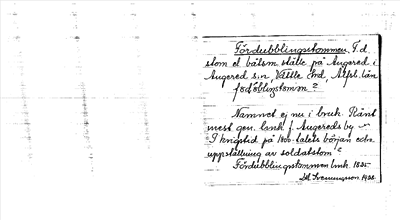 Fördubblingstommen, F.d.
stom el båtsm. ställe på Angered i
Angered s:n, Vättle hd, Älfsb. län
fördöblingstomm
Namnet ej nu i bruk. Känt
mest gen. lank f. Angereds by
I krigstid på 1800-talets början extra
uppställning av soldatstom
Fördubblingstommen lmk. 1825
1932